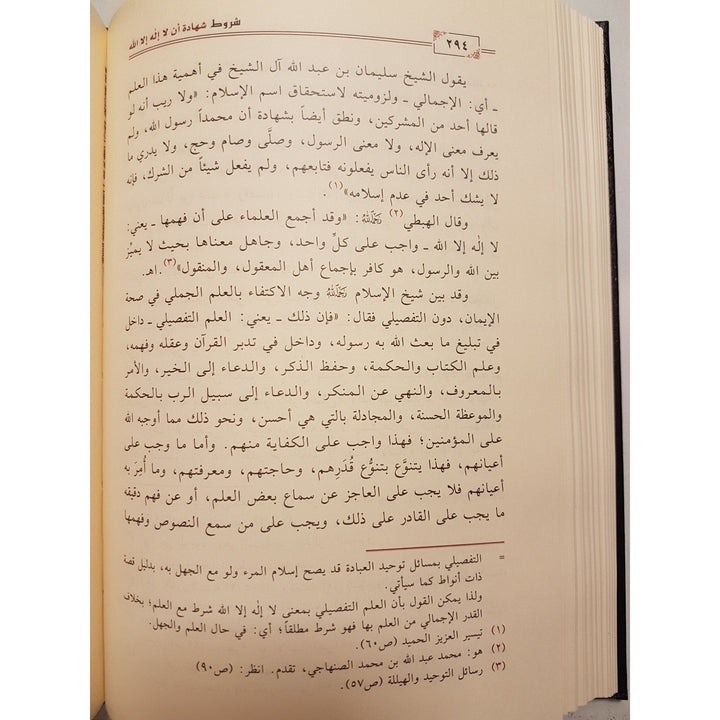 شروط شهادة أن لا إله إلا الله
٢٩٤
يقول الشيخ سليمان بن عبد الله آل الشيخ في أهمية هذا العلم
ـ أي: الإجمالي ـ ولزوميته لاستحقاق اسم الإسلام: «ولا ريب أنه لو
قالها أحد من المشركين، ونطق أيضاً بشهادة أن محمداً رسول الله، ولم
يعرف معنى الإله، ولا معنى الرسول، وصلَّى وصام وحج، ولا يدري ما
ذلك إلا أنه رأى الناس يفعلونه فتابعهم، ولم يفعل شيئاً من الشرك، فإنه
لا يشك أحد في عدم إسلامه»(١).
وقال الهبطي(٢) رحمه الله: «وقد أجمع العلماء على أن فهمها ـ يعني:
لا إله إلا الله ـ واجب على كلِّ واحد، وجاهل معناها بحيث لا يميِّز
بين الله والرسول، هو كافر بإجماع أهل المعقول، والمنقول»(٣).اهـ.
وقد بين شيخ الإسلام رحمه الله وجه الاكتفاء بالعلم الجملي في صحة
الإيمان، دون التفصيلي فقال: «فإن ذلك ـ يعني: العلم التفصيلي ـ داخل
في تبليغ ما بعث الله به رسوله، وداخل في تدبر القرآن وعقله وفهمه،
وعلم الكتاب والحكمة، وحفظ الذكر، والدعاء إلى الخير، والأمر
بالمعروف، والنهي عن المنكر، والدعاء إلى سبيل الرب بالحكمة
والموعظة الحسنة، والمجادلة بالتي هي أحسن، ونحو ذلك مما أوجبه الله
على المؤمنين؛ فهذا واجب على الكفاية منهم. وأما ما وجب على
أعيانهم، فهذا يتنوَّع بتنوُّع قُدَرِهم، وحاجتهم، ومعرفتهم، وما أُمِرَ به
أعيانهم فلا يجب على العاجز عن سماع بعض العلم، أو عن فهم دقيقه
ما يجب على القادر على ذلك، ويجب على من سمع النصوص وفهمها
= التفصيلي بمسائل توحيد العبادة قد يصح إسلام المرء ولو مع الجهل به، بدليل قصة
ذات أنواط كما سيأتي.
ولذا يمكن القول بأن العلم التفصيلي بمعنى لا إله إلا الله شرط مع العلم؛ بخلاف
القدر الإجمالي من العلم بها فهو شرط مطلقاً؛ أي: في حال العلم والجهل.
(١) تيسير العزيز الحميد (ص٦٠).
(٢) هو: محمد عبد الله بن محمد الصنهاجي، تقدم. انظر: (ص٩٠)
(٣) رسائل التوحيد والهيللة (ص٥٧).